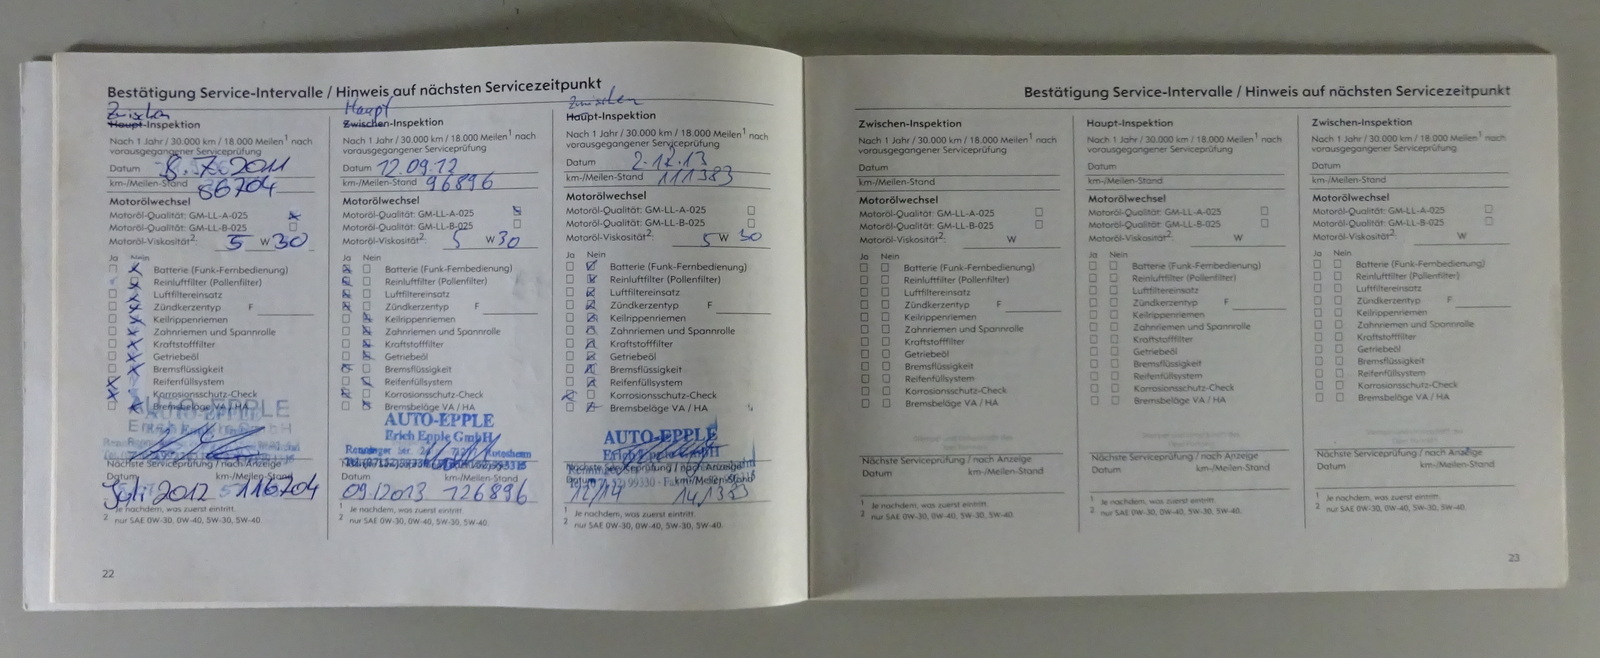 Bestätigung Service-Intervalle / Hinweis auf nächsten Servicezeitpunkt
Zwischen
Haupt-Inspektion
Nach 1 Jahr / 30.000 km / 18.000 Meilen¹ nach
vorausgegangener Serviceprüfung
Datum 8.7.2011
km-/Meilen-Stand 86704
Motorölwechsel
Motoröl-Qualität: GM-LL-A-025
Motoröl-Qualität: GM-LL-B-025
Motoröl-Viskosität²: 5 W 30
Ja Nein
Batterie (Funk-Fernbedienung)
Reinluftfilter (Pollenfilter)
Luftfiltereinsatz
Zündkerzentyp F
Keilrippenriemen
Zahnriemen und Spannrolle
Kraftstofffilter
Getriebeöl
Bremsflüssigkeit
Reifenfüllsystem
Korrosionsschutz-Check
Bremsbeläge VA / HA
AUTO-EPPLE
Nächste Serviceprüfung / nach Anzeige
Datum km-/Meilen-Stand
Juli 2012 116704
¹ Je nachdem, was zuerst eintritt.
² nur SAE 0W-30, 0W-40, 5W-30, 5W-40
22
Haupt
Zwischen-Inspektion
Nach 1 Jahr / 30.000 km / 18.000 Meilen¹ nach
vorausgegangener Serviceprüfung
Datum 12.09.12
km-/Meilen-Stand 96896
Motorölwechsel
Motoröl-Qualität: GM-LL-A-025
Motoröl-Qualität: GM-LL-B-025
Motoröl-Viskosität²: 5 W 30
Ja Nein
Batterie (Funk-Fernbedienung)
Reinluftfilter (Pollenfilter)
Luftfiltereinsatz
Zündkerzentyp F
Keilrippenriemen
Zahnriemen und Spannrolle
Kraftstofffilter
Getriebeöl
Bremsflüssigkeit
Reifenfüllsystem
Korrosionsschutz-Check
Bremsbeläge VA / HA
AUTO-EPPLE
Erich Epple GmbH
Renninger Str.
09.2013 126896
¹ Je nachdem, was zuerst eintritt.
² nur SAE 0W-30, 0W-40, 5W-30, 5W-40.
Zwischen
Haupt-Inspektion
Nach 1 Jahr / 30.000 km / 18.000 Meilen¹ nach
vorausgegangener Serviceprüfung
Datum 2.12.13
km-/Meilen-Stand 111383
Motorölwechsel
Motoröl-Qualität: GM-LL-A-025
Motoröl-Qualität: GM-LL-B-025
Motoröl-Viskosität²: 5 W 30
Ja Nein
Batterie (Funk-Fernbedienung)
Reinluftfilter (Pollenfilter)
Luftfiltereinsatz
Zündkerzentyp F
Keilrippenriemen
Zahnriemen und Spannrolle
Kraftstofffilter
Getriebeöl
Bremsflüssigkeit
Reifenfüllsystem
Korrosionsschutz-Check
Bremsbeläge VA / HA
AUTO-EPPLE
Erich Epple GmbH
Nächste Serviceprüfung / nach Anzeige
Datum km-/Meilen-Stand
12/14 141383
¹ Je nachdem, was zuerst eintritt.
² nur SAE 0W-30, 0W-40, 5W-30, 5W-40.
Bestätigung Service-Intervalle / Hinweis auf nächsten Servicezeitpunkt
Zwischen-Inspektion
Nach 1 Jahr / 30.000 km / 18.000 Meilen¹ nach
vorausgegangener Serviceprüfung
Datum
km-/Meilen-Stand
Motorölwechsel
Motoröl-Qualität: GM-LL-A-025
Motoröl-Qualität: GM-LL-B-025
Motoröl-Viskosität²: W
Ja Nein
Batterie (Funk-Fernbedienung)
Reinluftfilter (Pollenfilter)
Luftfiltereinsatz
Zündkerzentyp F
Keilrippenriemen
Zahnriemen und Spannrolle
Kraftstofffilter
Getriebeöl
Bremsflüssigkeit
Reifenfüllsystem
Korrosionsschutz-Check
Bremsbeläge VA / HA
Nächste Serviceprüfung / nach Anzeige
Datum km-/Meilen-Stand
¹ Je nachdem, was zuerst eintritt.
² nur SAE 0W-30, 0W-40, 5W-30, 5W-40.
Haupt-Inspektion
Nach 1 Jahr / 30.000 km / 18.000 Meilen¹ nach
vorausgegangener Serviceprüfung
Datum
km-/Meilen-Stand
Motorölwechsel
Motoröl-Qualität: GM-LL-A-025
Motoröl-Qualität: GM-LL-B-025
Motoröl-Viskosität²: W
Ja Nein
Batterie (Funk-Fernbedienung)
Reinluftfilter (Pollenfilter)
Luftfiltereinsatz
Zündkerzentyp F
Keilrippenriemen
Zahnriemen und Spannrolle
Kraftstofffilter
Getriebeöl
Bremsflüssigkeit
Reifenfüllsystem
Korrosionsschutz-Check
Bremsbeläge VA / HA
Nächste Serviceprüfung / nach Anzeige
Datum km-/Meilen-Stand
¹ Je nachdem, was zuerst eintritt.
² nur SAE 0W-30, 0W-40, 5W-30, 5W-40.
Zwischen-Inspektion
Nach 1 Jahr / 30.000 km / 18.000 Meilen¹ nach
vorausgegangener Serviceprüfung
Datum
km-/Meilen-Stand
Motorölwechsel
Motoröl-Qualität: GM-LL-A-025
Motoröl-Qualität: GM-LL-B-025
Motoröl-Viskosität²: W
Ja Nein
Batterie (Funk-Fernbedienung)
Reinluftfilter (Pollenfilter)
Luftfiltereinsatz
Zündkerzentyp F
Keilrippenriemen
Zahnriemen und Spannrolle
Kraftstofffilter
Getriebeöl
Bremsflüssigkeit
Reifenfüllsystem
Korrosionsschutz-Check
Bremsbeläge VA / HA
Nächste Serviceprüfung / nach Anzeige
Datum km-/Meilen-Stand
¹ Je nachdem, was zuerst eintritt.
² nur SAE 0W-30, 0W-40, 5W-30, 5W-40.
23